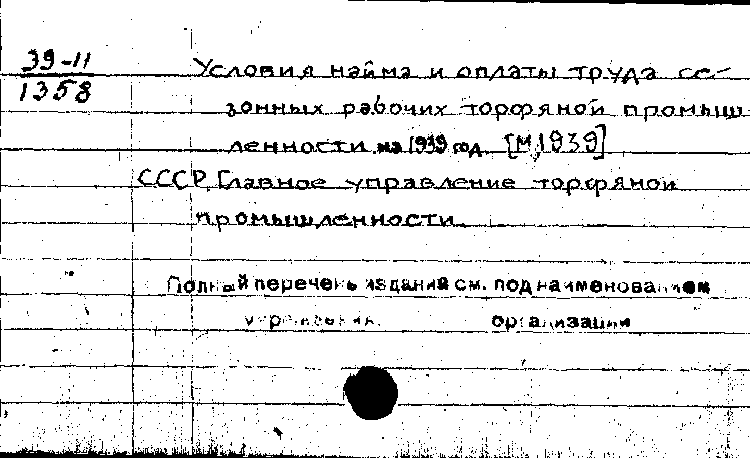 39-11
1358
Условия найма и оплаты труда се-
зонных рабочих торфяной промыш
ленности на 1939 год. [М, 1939]
СССР. Главное управление торфяной
промышленности.
Полный перечень изданий см. под наименованием
организации